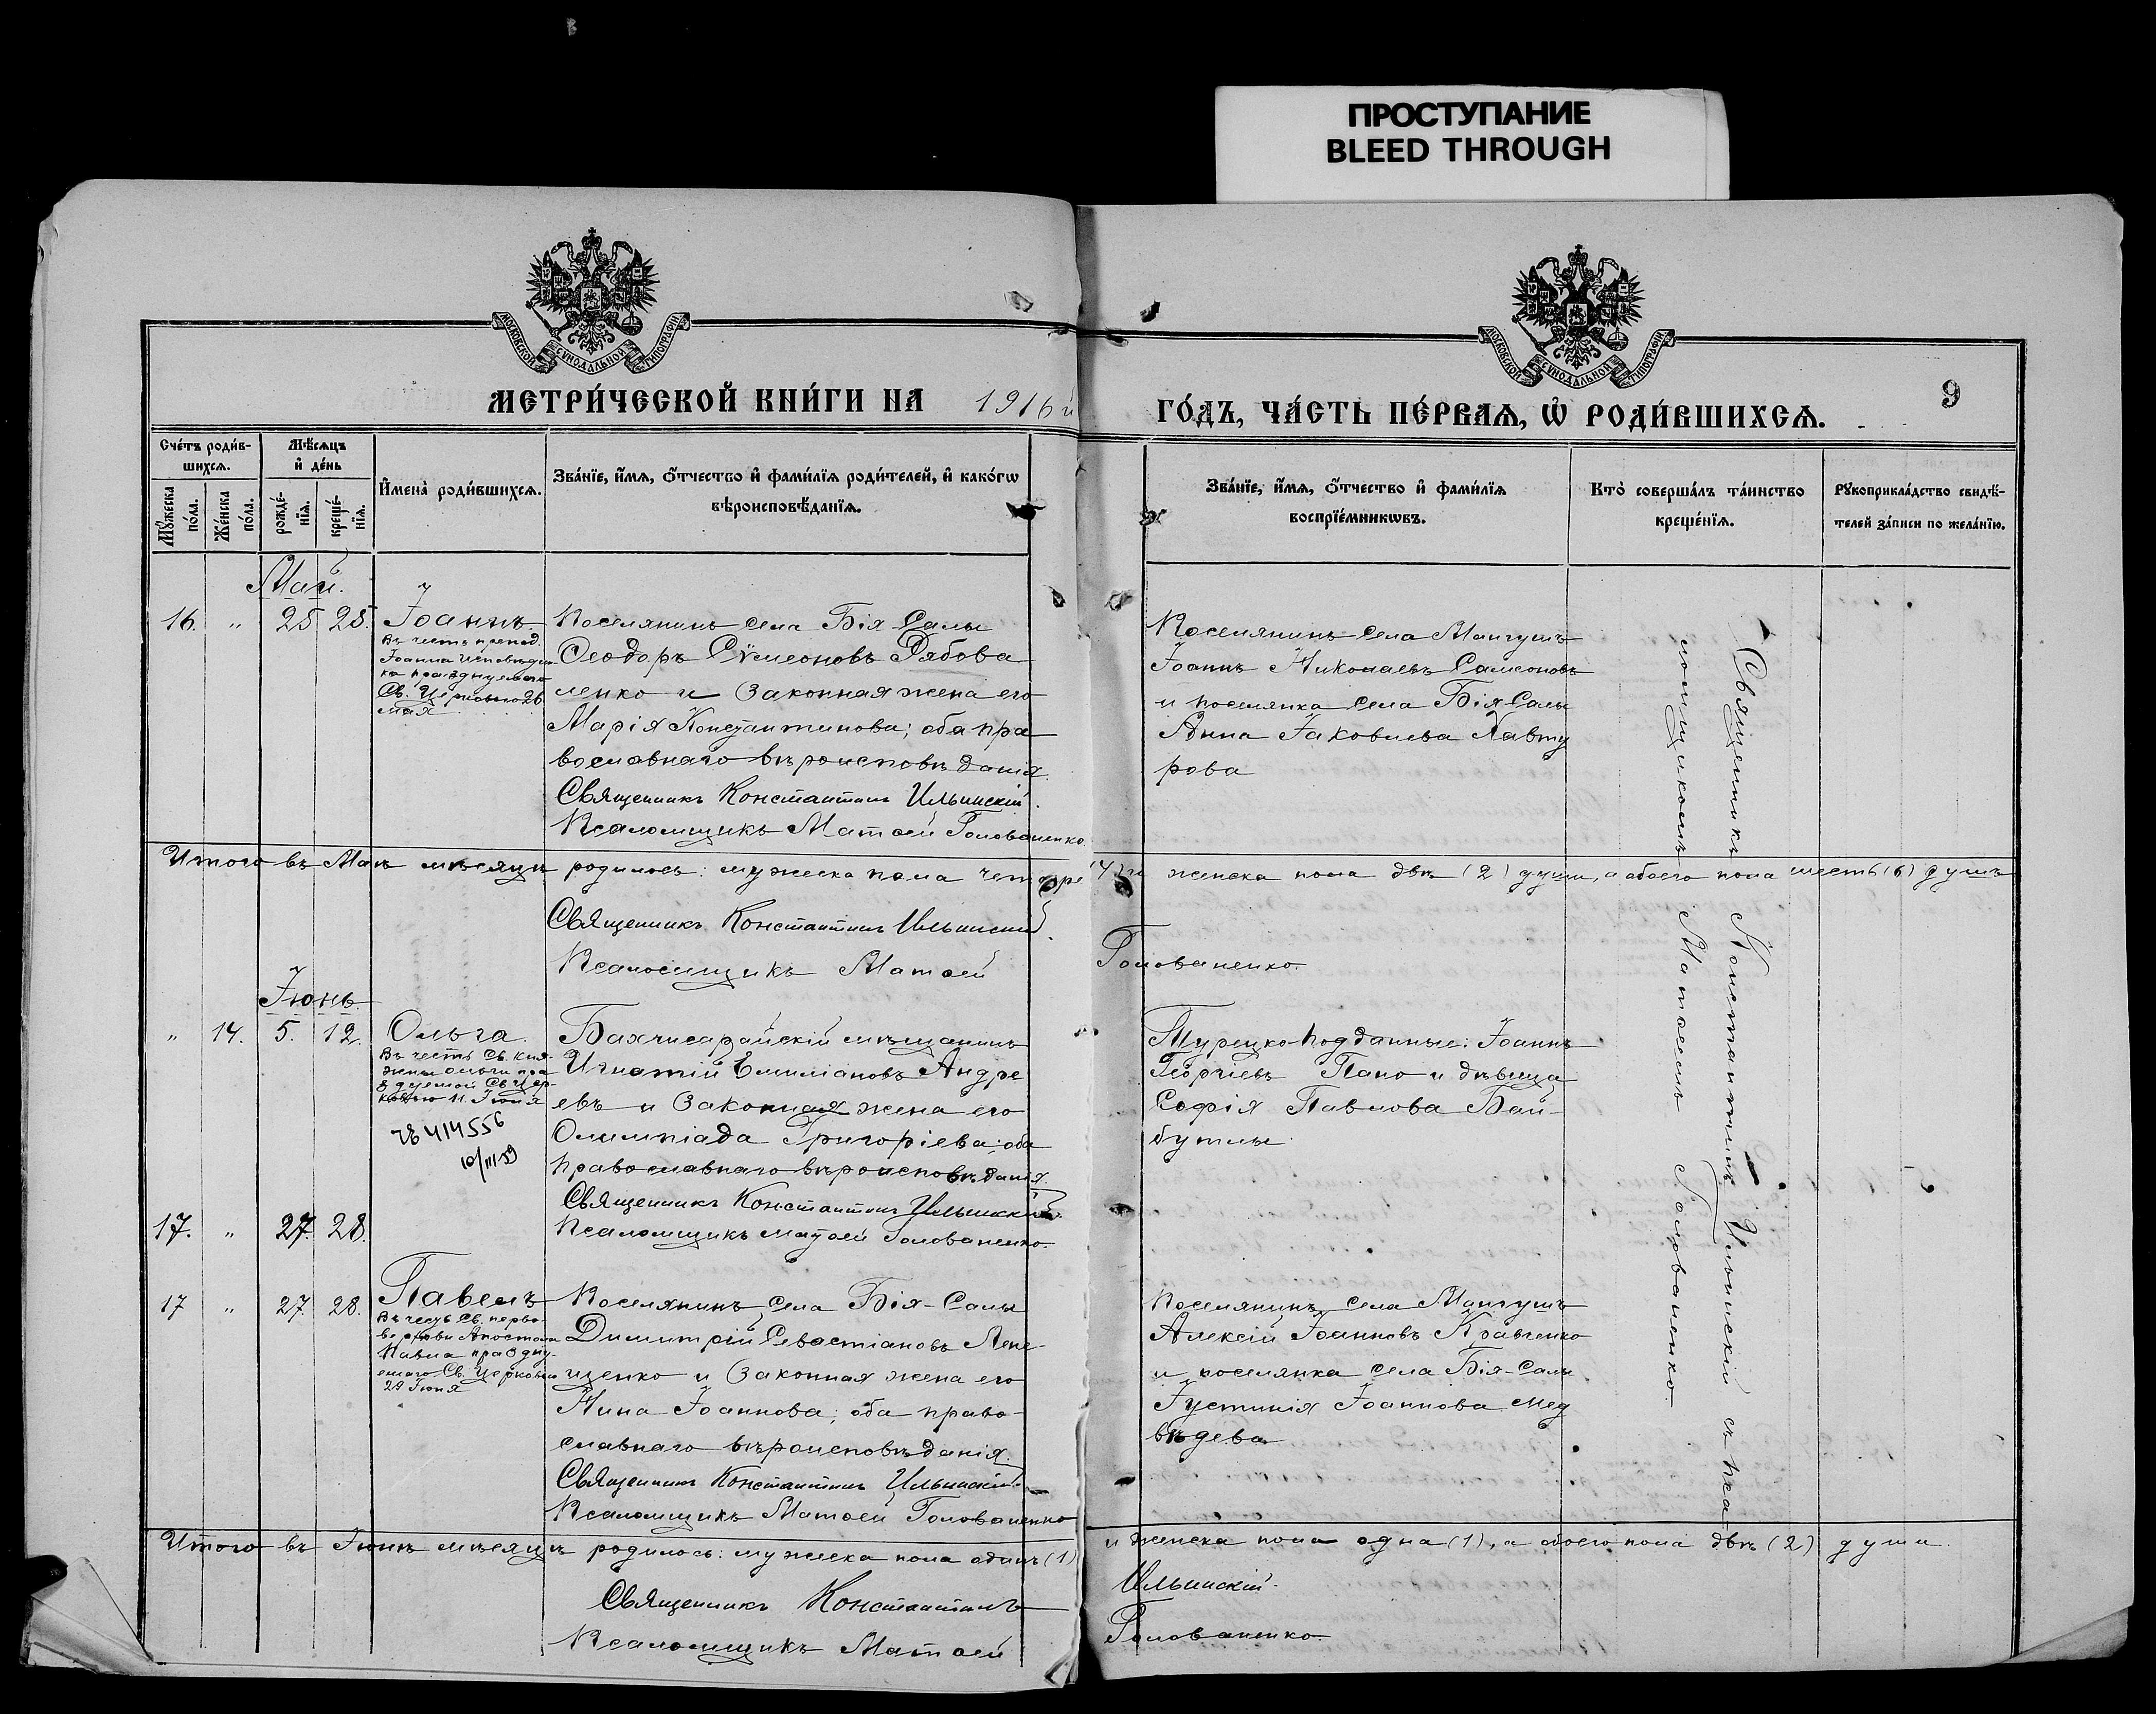 ПРОСТУПАНИЕ
BLEED THROUGH
МОСКОВСКОЙ СУНОДАЛЬНОЙ ТИПОГРАФІИ
МОСКОВСКОЙ СУНОДАЛЬНОЙ ТИПОГРАФІИ
МЕТРИ́ЧЕСКОЙ КНИ́ГИ НА 1916 й
ГО́ДЪ, ЧА́СТЬ ПЕ́РВАЯ, Ѡ҆ РОДИ́ВШИХСЯ.
9
Сче́тъ роди́в-
шихся.
Мѣ́сяцъ
и҆ де́нь
Мꙋ́жеска
по́ла.
Же́нска
по́ла.
рожде́-
нїя.
креще́-
нїя.
И҆мена̀ роди́вшихся.
Зва́нїе, и҆́мя, ѻ҆́тчество и҆ фами́лїя роди́телей, и҆ како́гѡ
вѣроисповѣ́данїя.
Зва́нїе, и҆́мя, ѻ҆́тчество и҆ фами́лїя
воспрїе́мникѡвъ.
Кто̀ соверша́лъ та́инство
креще́нїя.
Рꙋкоприкла́дство свидѣ́-
телей за́писи по жела́нїю.
Май.
16. " 25 25. Іоаннъ.
Въ честь препод.
Іоанна исповѣдни
ка празднуемаго
Св. Церковью 26
мая
Поселянинъ села Бія-Салы
Ѳеодоръ Сѵмеоновъ Рябова
ленко и законная жена его
Марія Константинова; оба пра
вославнаго вѣроисповѣданія.
Священникъ Константинъ Ильинскій.
Псаломщикъ Матѳей Голованенко.
Поселянинъ села Мангушъ
Іоаннъ Николаевъ Самсоновъ
и поселянка села Бія-Салы
Анна Іаковлева Лавту
рова
Священникъ Константинъ Ильинскій съ пса
ломщикомъ Матѳеемъ Голованенко
Итого въ Маѣ мѣсяцѣ родилось: мужеска пола четыре (4) и женска пола двѣ (2) души, а обоего пола шесть (6) душъ
Священникъ Константинъ Ильинскій.
Псаломщикъ Матѳей Голованенко.
Іюнь
" 14. 5. 12. Ольга.
Въ честь Св. кня-
жны Ольги пра
зднуемой Св. Цер-
ковью 11. Іюля
414556
10/III 59
Бахчисарайскій мѣщанинъ
Игнатій Емиліановъ Андре
евъ и законная жена его
Олимпіада Григоріева; оба
православнаго вѣроисповѣданія.
Священникъ Константинъ Ильинскій.
Псаломщикъ Матѳей Голованенко.
Турецко-подданные: Іоаннъ
Георгіевъ Папо и дѣвица
Софія Павлова Бай-
бутлы.
17. " 27. 28.
17 " 27. 28. Павелъ
Въ честь Св. перво-
верховн Апостола
Павла праздну-
емаго Св. Церковью
29 Іюня
Поселянинъ села Бія-Салы
Димитрій Севастіановъ Леме-
щенко и законная жена его
Нина Іоаннова; оба право-
славнаго вѣроисповѣданія.
Священникъ Константинъ Ильинскій.
Псаломщикъ Матѳей Голованенко
Поселянинъ села Мангушъ
Алексій Іоанновъ Кравченко
и поселянка села Бія-Салы
Іустинія Іоаннова Мед
вѣдева.
Итого въ Іюнѣ мѣсяцѣ родилось: мужеска пола одинъ (1) и женска пола одна (1), а обоего пола двѣ (2) души.
Священникъ Константинъ Ильинскій.
Псаломщикъ Матѳей Голованенко.